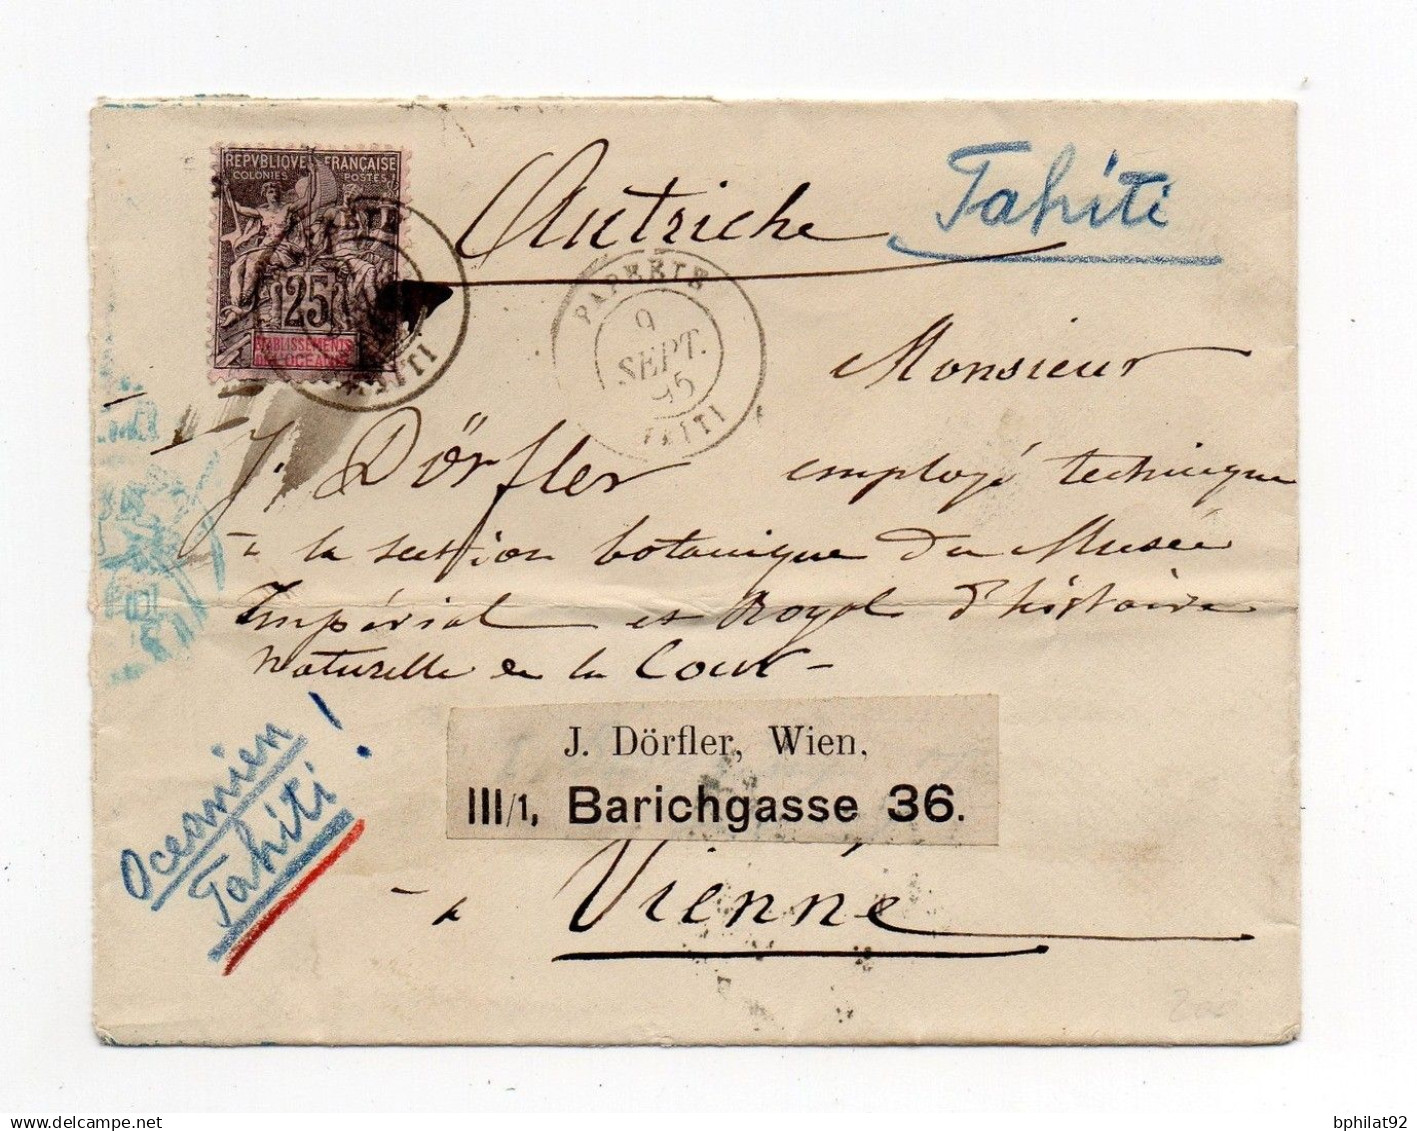 REPVBLIQVE FRANÇAISE
COLONIES POSTES
25
ETABLISSEMENTS
DE L'OCEANIE
Autriche
Tahiti
PAPEETE
9
SEPT.
95
TAITI
Monsieur
J. Dörfler employé technique
à la section botanique du Musée
Impérial et Royal d'histoire
naturelle en la Cour -
J. Dörfler, Wien,
III/1, Barichgasse 36.
Oceanien
Tahiti !
- à Vienne
200
bphilat92